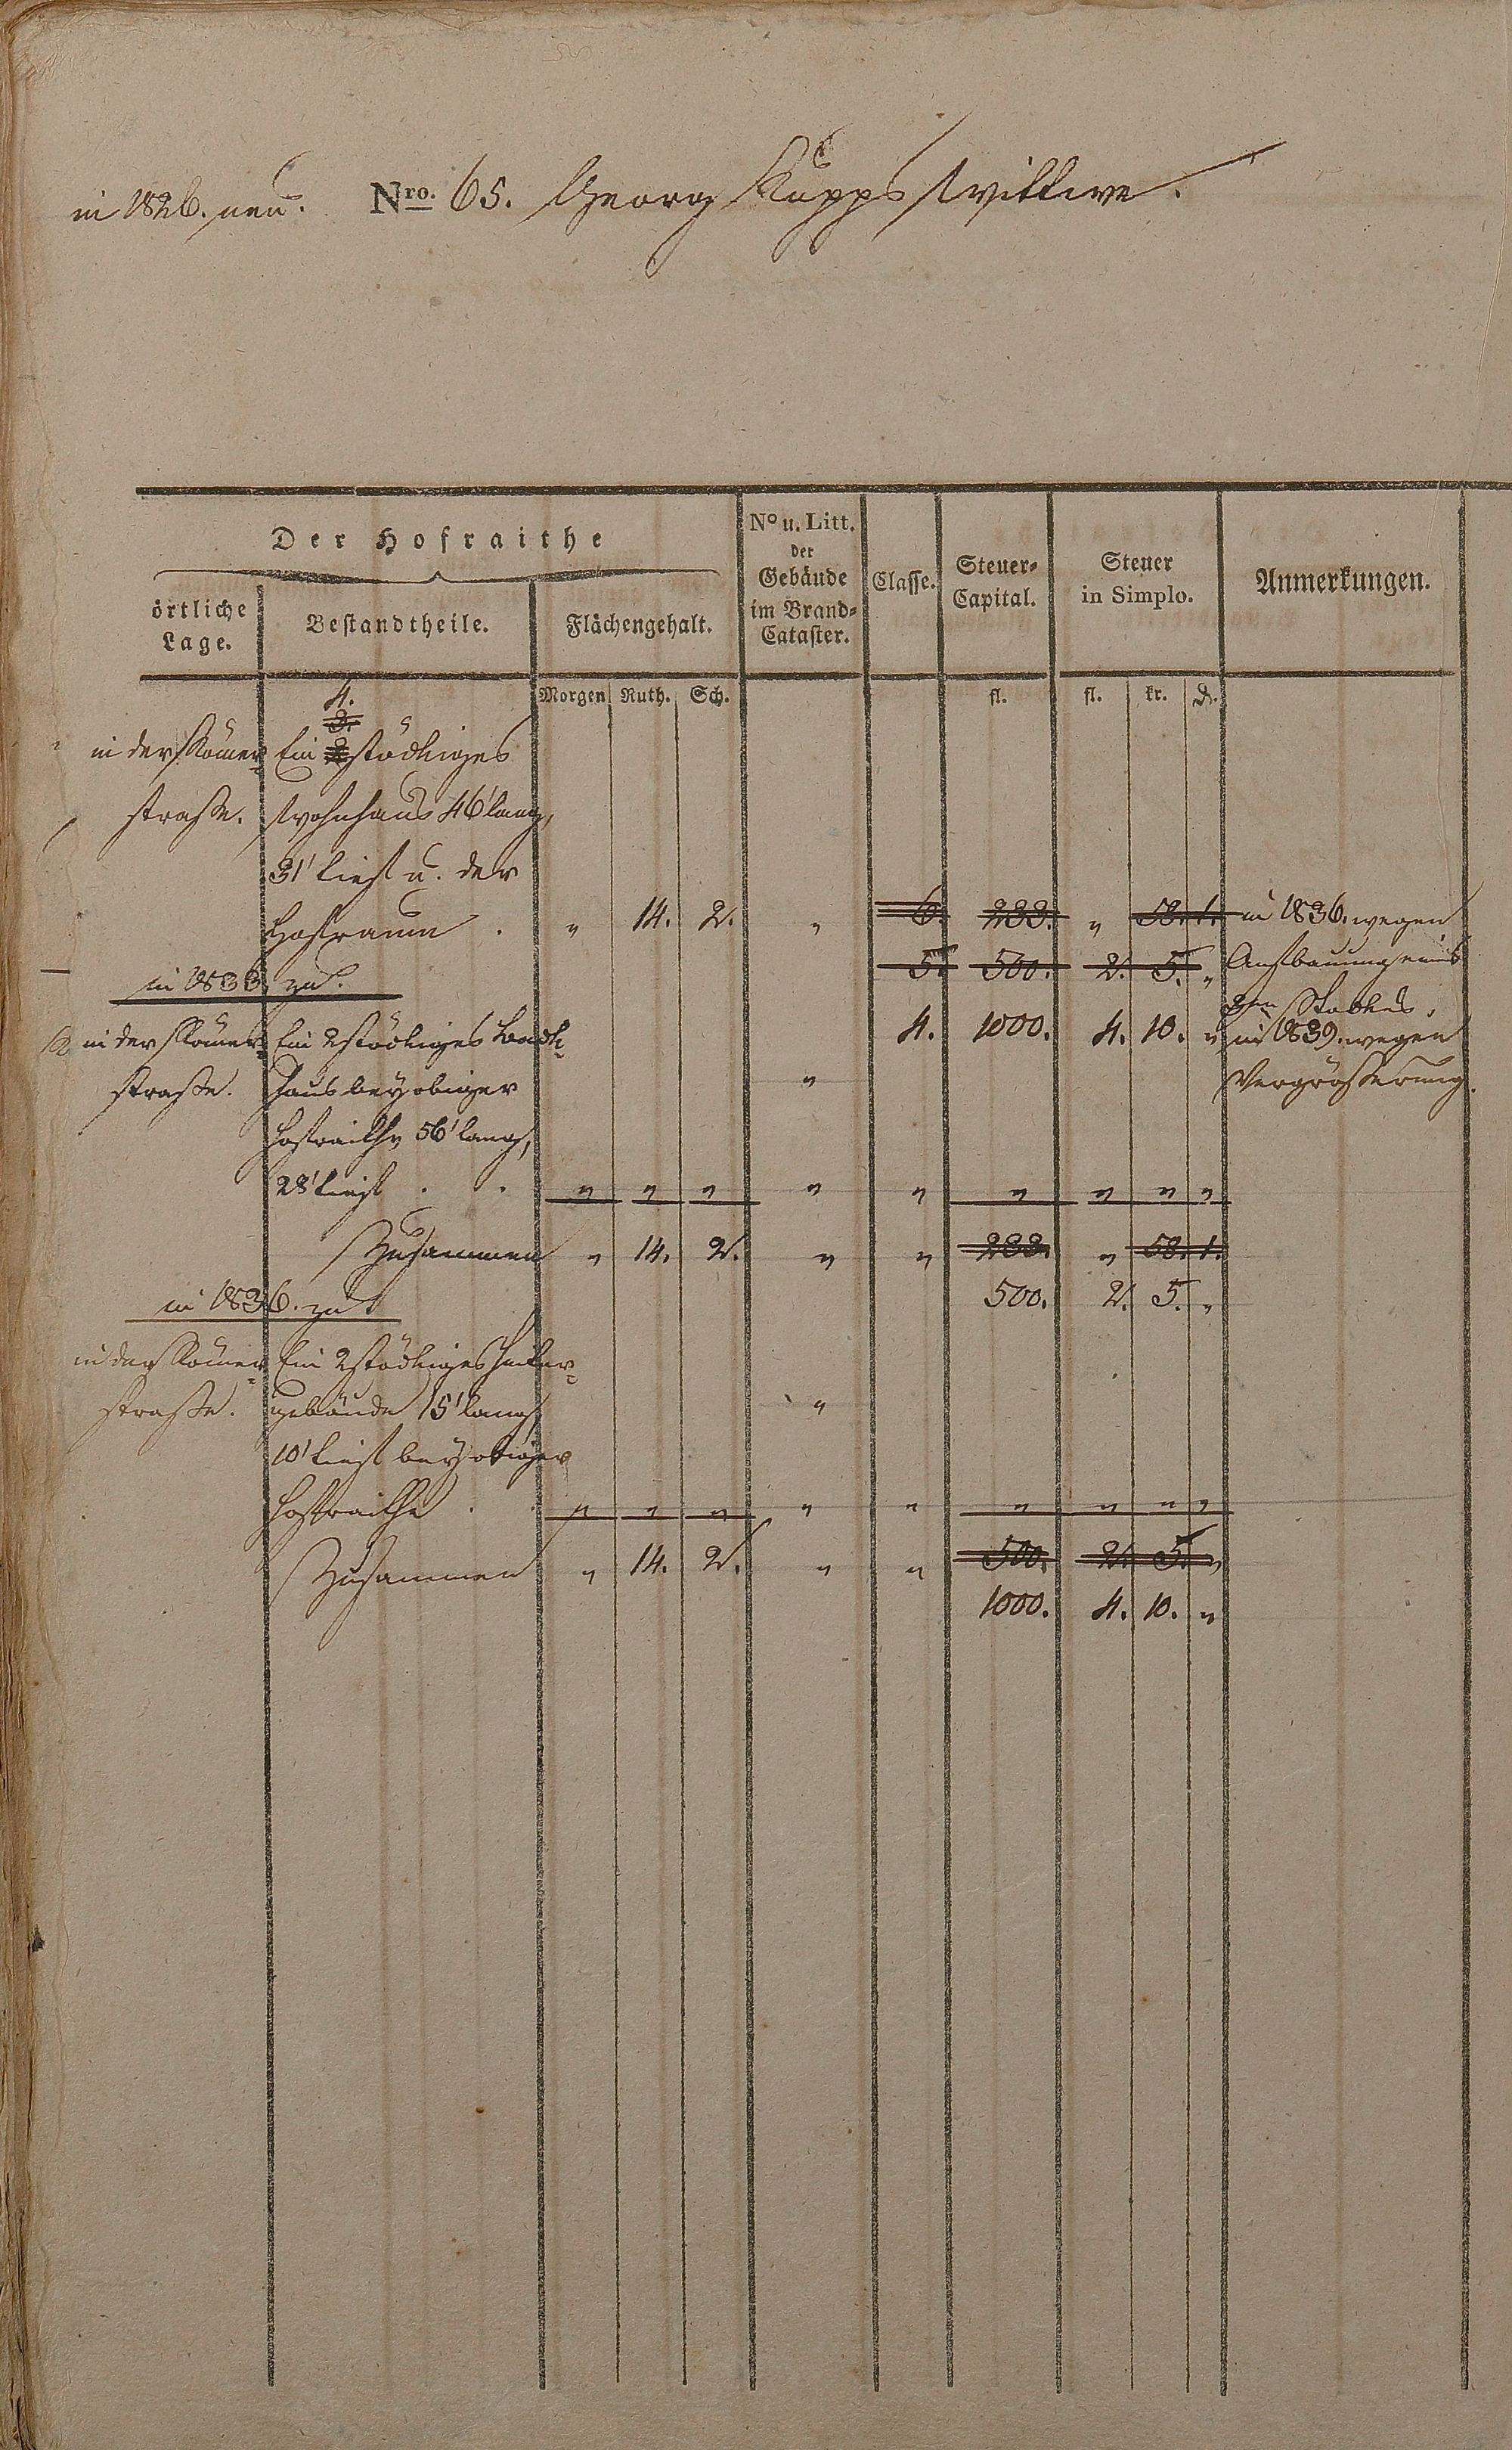 in 1826. neu. Nro. 65. Georg Kapps Wittwe.
Der Hofraithe
örtliche Lage.
Bestandtheile.
Flächengehalt.
No u. Litt. der Gebäude im Brand-Cataster.
Classe.
Steuer-Capital.
Steuer in Simplo.
Anmerkungen.
Morgen Ruth. Sch. fl. fl. kr. d.
4.
3.
in der Römer- Ein 2 stöckiges
straße. Wohnhaus 46' lang,
31' tief u. der
Hofraum . „ 14. 2. „ 6. 233. „ 58. 1. in 1836. wegen
5. 500. 2. 5. „ Aufbauung eines
in 1833 zu. 3ten Stockes.
in der Römer- Ein 2 stöckiges Back- 4. 1000. 4. 10. „ in 1839. wegen
straße. haus bey obiger „ Vergrößerung.
Hofraithe 56' lang,
28' tief . . „ „ „ „ „ „ „ „ „
Zusammen „ 14. 2. „ „ 233. „ 58. 1.
in 1836. zu 500. 2. 5. „
in der Römer- Ein 2 stöckiges Hinter-
straße. gebäude 15' lang, „
10' tief bey obiger
Hofraithe . „ „ „ „ „ „ „ „ „
Zusammen „ 14. 2. „ „ 500. 2. 5. „
1000. 4. 10. „